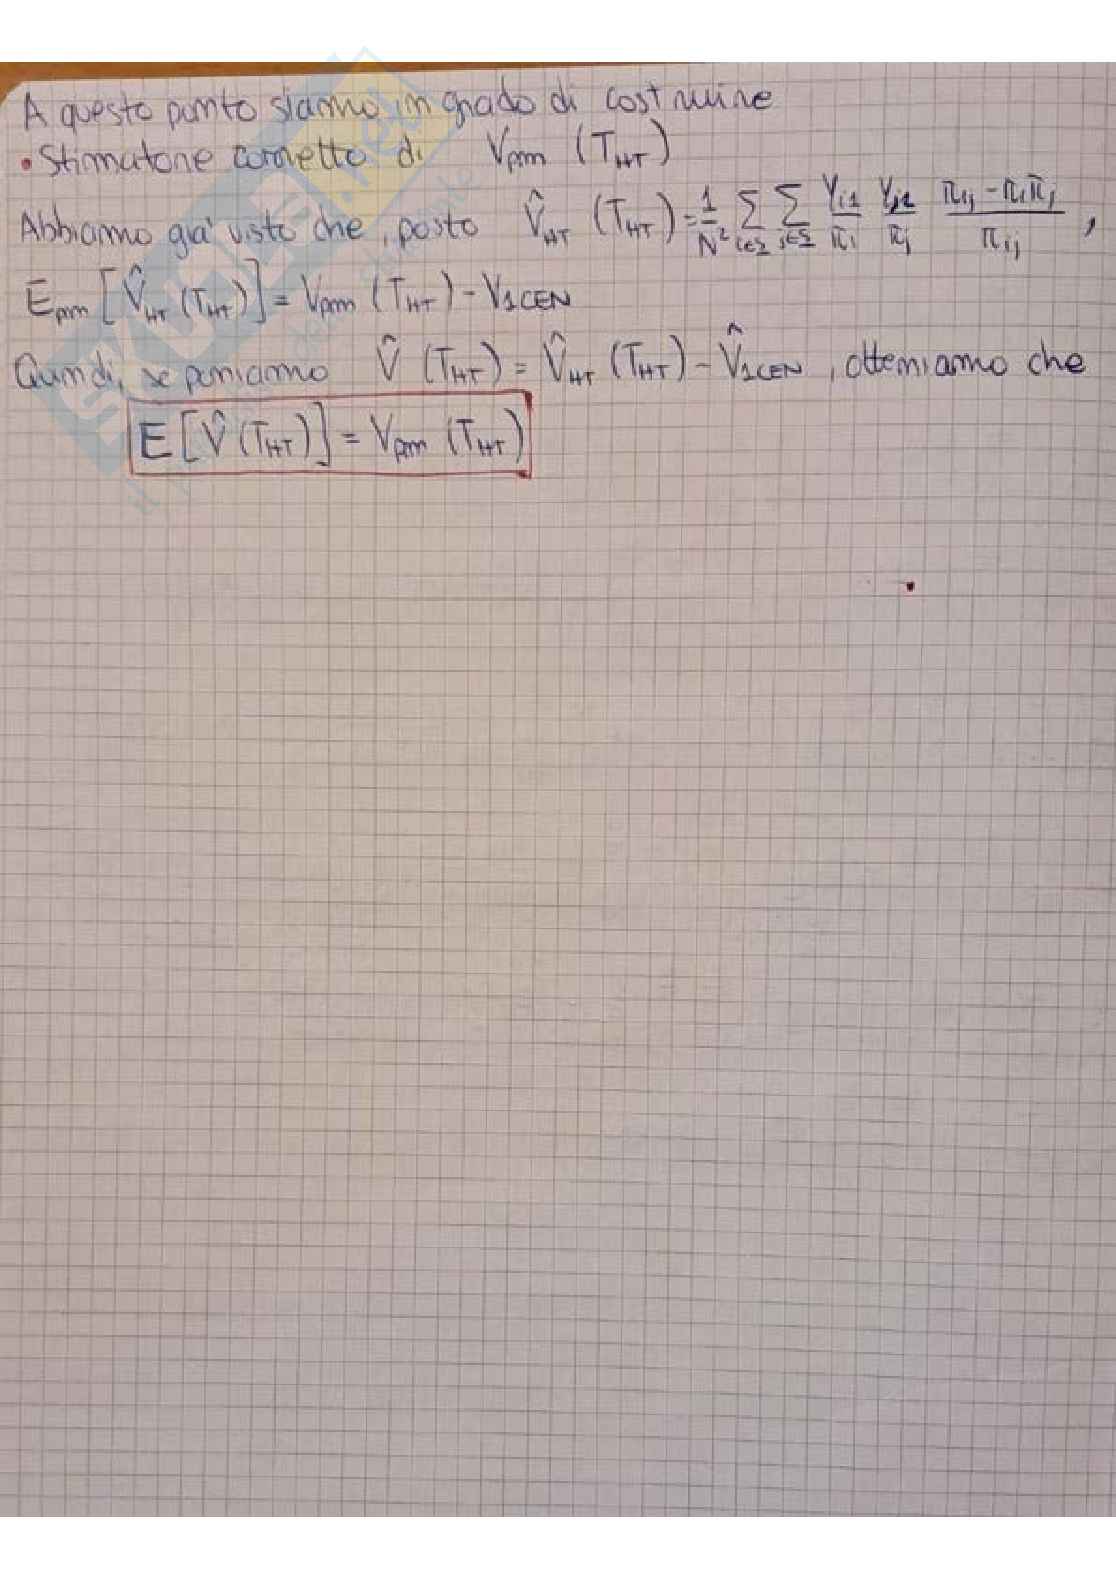 A questo punto siamo in grado di costruire
• Stimatore corretto di Vpm (T_HT)
Abbiamo già visto che, posto V̂_HT (T_HT) = 1/N² Σ_{i∈S} Σ_{j∈S} Y_i1/π_i Y_j1/π_j (π_ij - π_i π_j)/π_ij ,
E_pm [V̂_HT (T_HT)] = V_pm (T_HT) - V_1CEN
Quindi, se poniamo V̂ (T_HT) = V̂_HT (T_HT) - V̂_1CEN , otteniamo che
E [V̂ (T_HT)] = V_pm (T_HT)